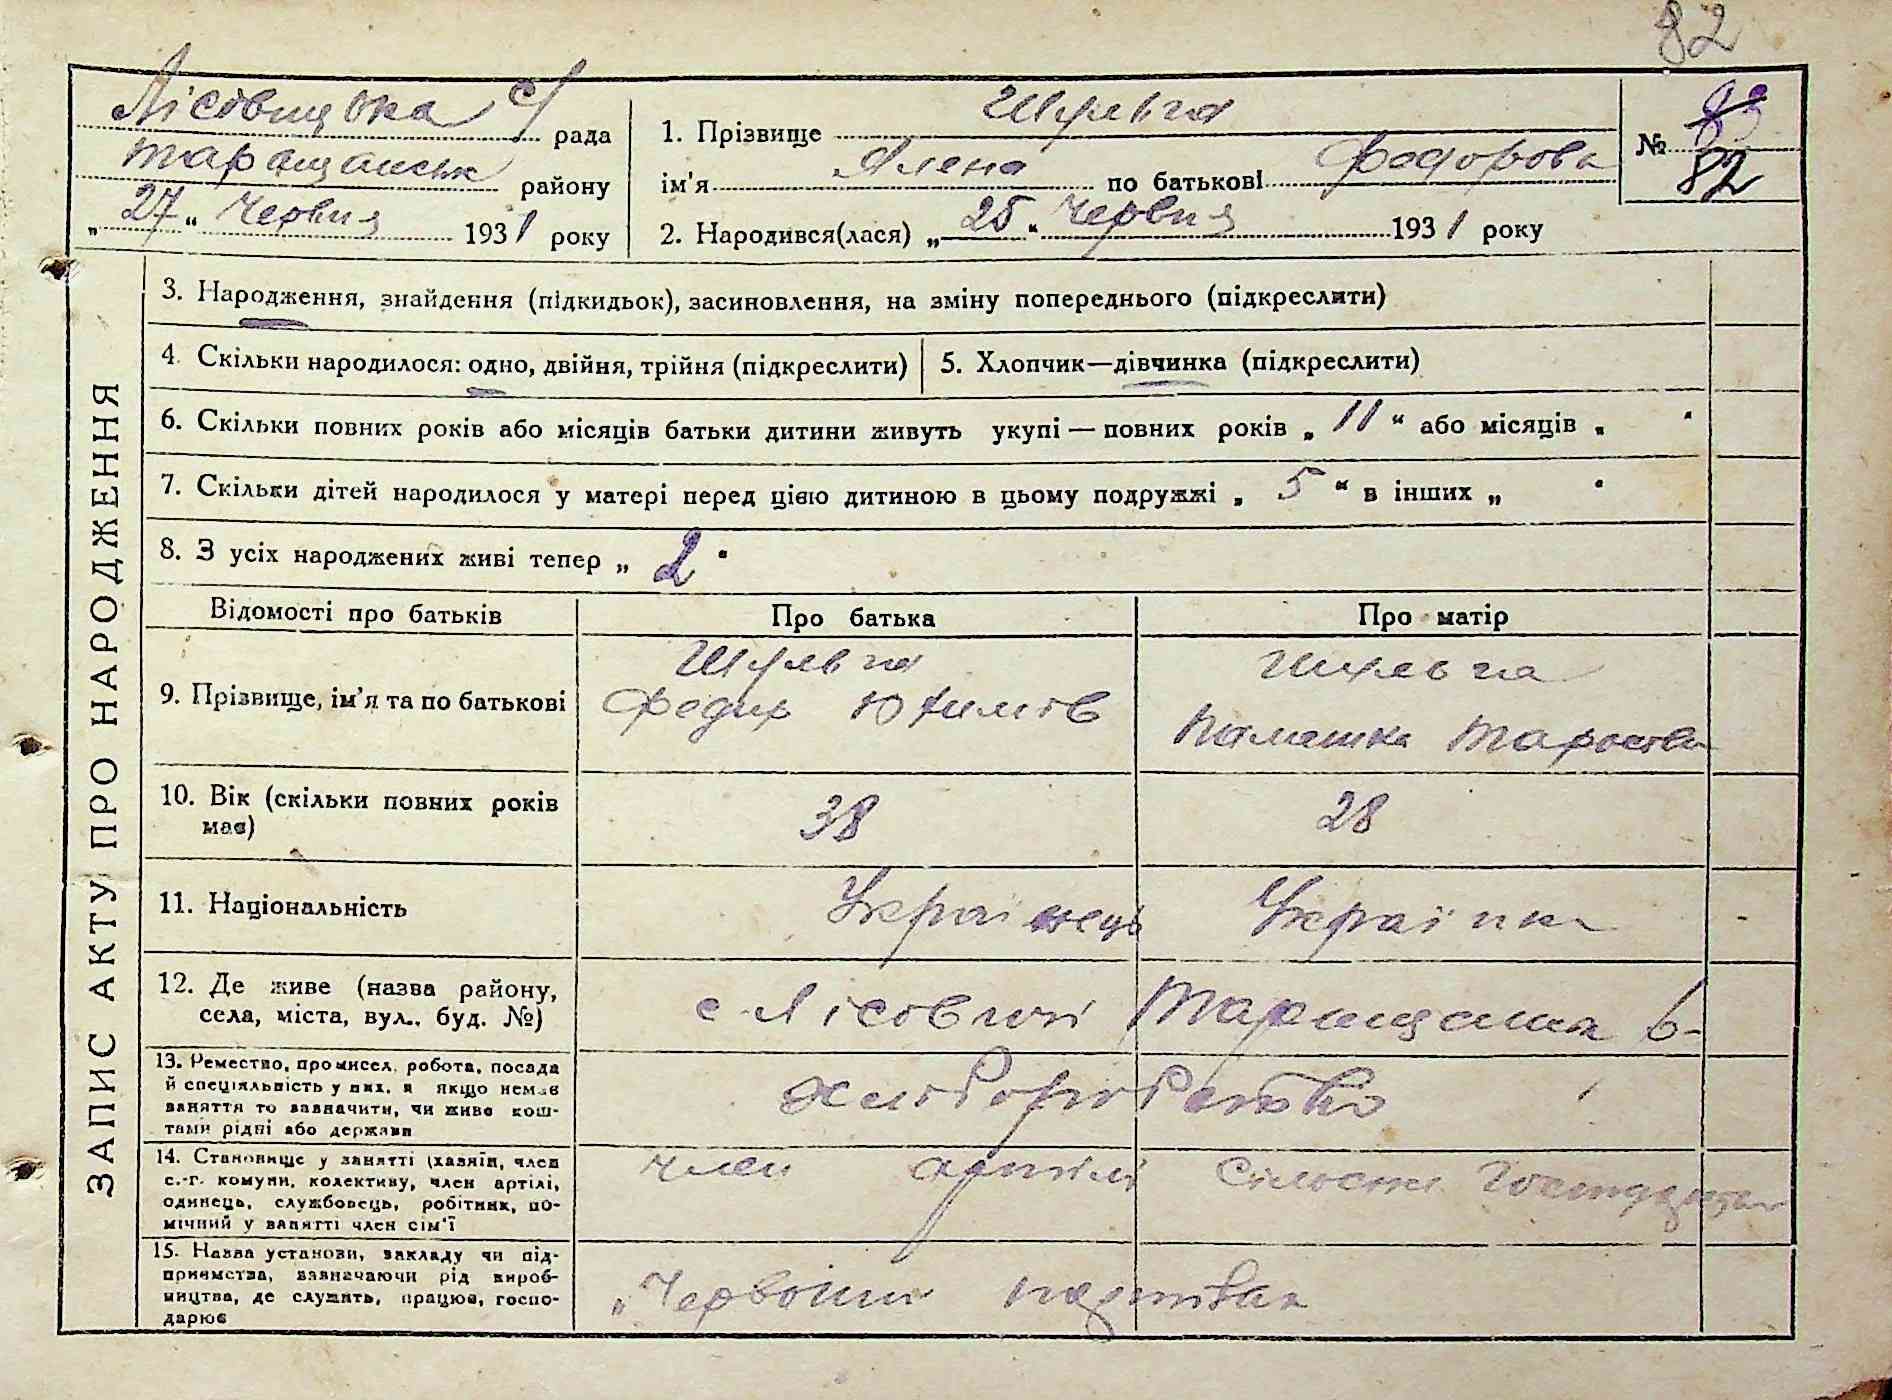 82
Лісовицька с/рада
Таращанськ району
„27“ Червня 1931 року
1. Прізвище Шульга
№ 83
82
ім'я Ялена по батькові Федорова
2. Народився(лася) „25“ Червня 1931 року
ЗАПИС АКТУ ПРО НАРОДЖЕННЯ
3. Народження, знайдення (підкидьок), засиновлення, на зміну попереднього (підкреслити)
4. Скільки народилося: одно, двійня, трійня (підкреслити)
5. Хлопчик—дівчинка (підкреслити)
6. Скільки повних років або місяців батьки дитини живуть укупі — повних років „ 11 “ або місяців „ “
7. Скільки дітей народилося у матері перед цією дитиною в цьому подружжі „ 5 “ в інших „ “
8. З усіх народжених живі тепер „ 2 “
Відомості про батьків Про батька Про матір
9. Прізвище, ім'я та по батькові
Шульга
Федир Юхимов
Шульга
Тарасова
10. Вік (скільки повних років
має)
38
28
11. Національність
Українець
Українка
12. Де живе (назва району,
села, міста, вул., буд. №)
с Лісовичі Таращанськ
13. Ремество, промисел, робота, посада
й спеціяльність у них, а якщо немає
заняття то зазначити, чи живе кош-
тами рідні або держави
Хліборобство
14. Становище у занятті (хазяїн, член
с.-г. комуни, колективу, член артілі,
одинець, службовець, робітник, по-
мічний у занятті член сім'ї
член артілі
15. Назва установи, закладу чи під-
приємства, зазначаючи рід вироб-
ництва, де служить, працює, госпо-
дарює
„Червоний